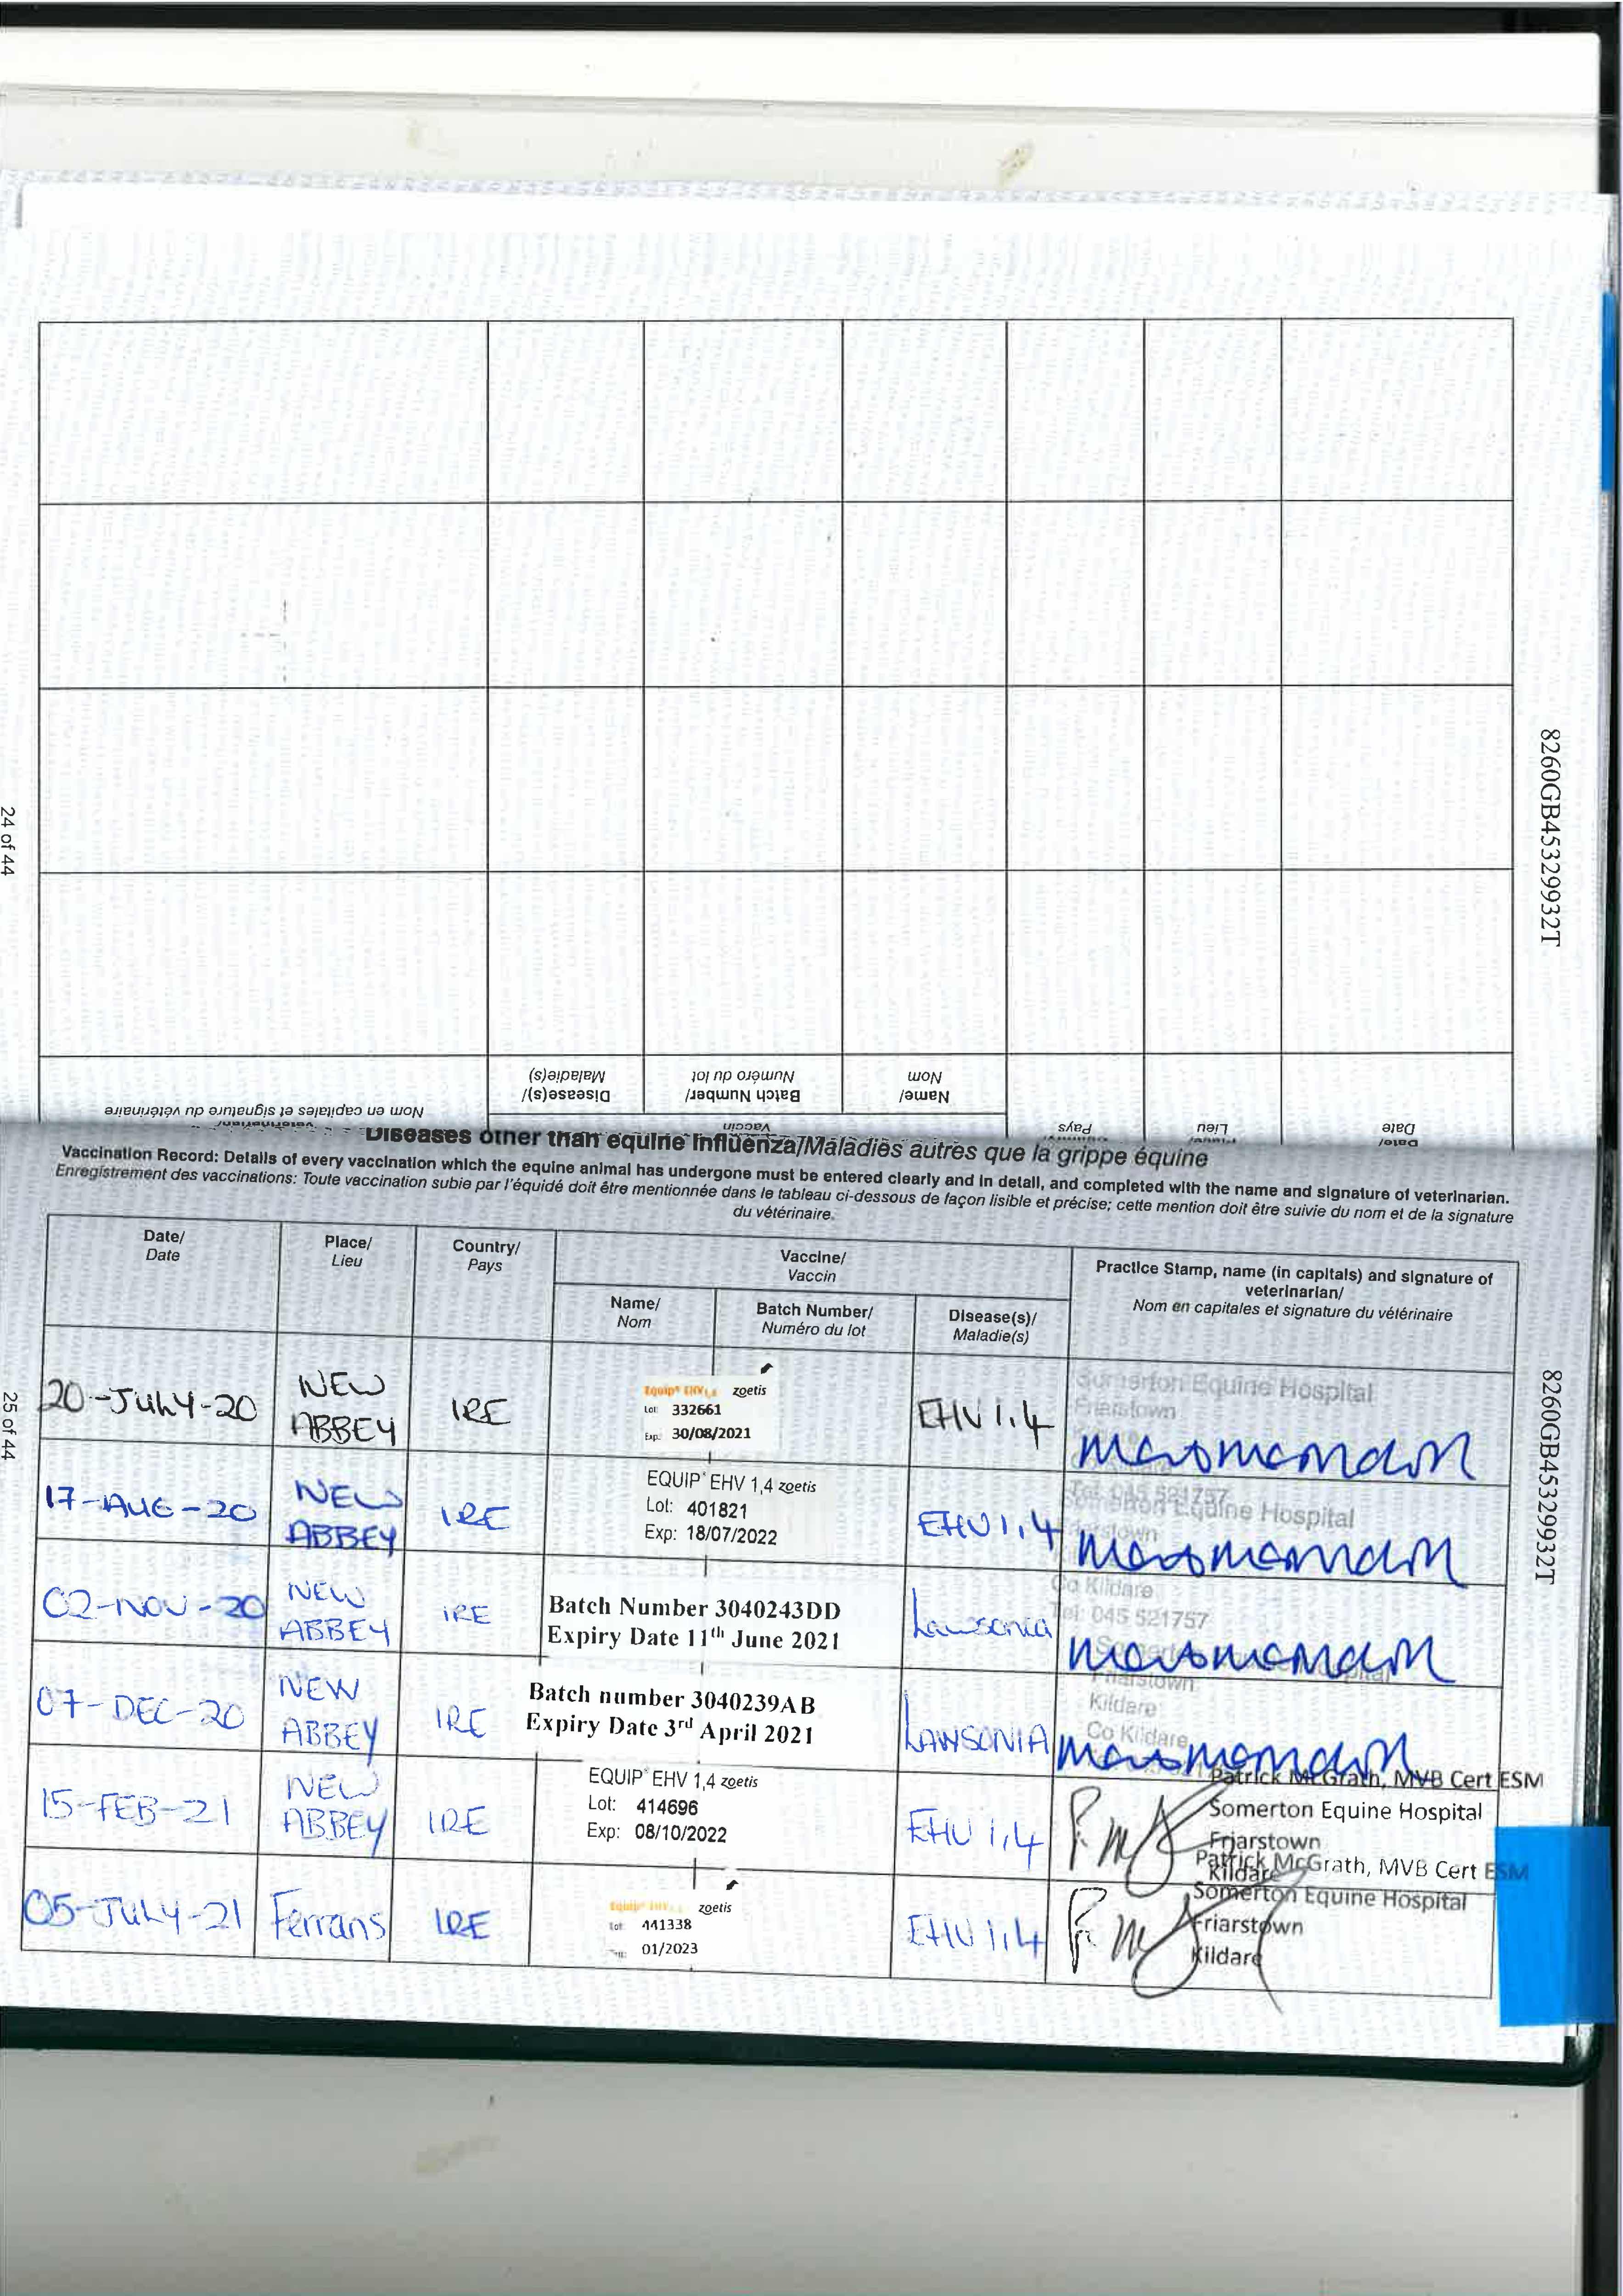 8260GB45329932T
24 of 44
Nom en capitales et signature du vétérinaire
Disease(s)/
Maladie(s)
Batch Number/
Numéro du lot
Name/
Nom
Vaccin
Pays
Lieu
Date/
Date
Diseases other than equine influenza/Maladies autres que la grippe équine
Vaccination Record: Details of every vaccination which the equine animal has undergone must be entered clearly and in detail, and completed with the name and signature of veterinarian.
Enregistrement des vaccinations: Toute vaccination subie par l'équidé doit être mentionnée dans le tableau ci-dessous de façon lisible et précise; cette mention doit être suivie du nom et de la signature
du vétérinaire.
Date/
Date
Place/
Lieu
Country/
Pays
Vaccine/
Vaccin
Name/
Nom
Batch Number/
Numéro du lot
Disease(s)/
Maladie(s)
Practice Stamp, name (in capitals) and signature of
veterinarian/
Nom en capitales et signature du vétérinaire
20-JULY-20
NEW
ABBEY
IRE
Equip EHV1,4 zoetis
Lot: 332661
Exp: 30/08/2021
EHV 1,4
Somerton Equine Hospital
Friarstown
17-AUG-20
NEW
ABBEY
IRE
EQUIP EHV 1,4 zoetis
Lot: 401821
Exp: 18/07/2022
EHV 1,4
045 521757
Somerton Equine Hospital
02-NOV-20
NEW
ABBEY
IRE
Batch Number 3040243DD
Expiry Date 11th June 2021
Lawsonia
Co Kildare
Tel: 045 521757
07-DEC-20
NEW
ABBEY
IRE
Batch number 3040239AB
Expiry Date 3rd April 2021
LAWSONIA
Friarstown
Kildare
Co Kildare
15-FEB-21
NEW
ABBEY
IRE
EQUIP EHV 1,4 zoetis
Lot: 414696
Exp: 08/10/2022
EHV 1,4
Patrick McGrath, MVB Cert ESM
Somerton Equine Hospital
Friarstown
Kildare
05-JULY-21
Ferrans
IRE
zoetis
Lot: 441338
01/2023
EHV 1,4
Patrick McGrath, MVB Cert ESM
Somerton Equine Hospital
Friarstown
Kildare
25 of 44
8260GB45329932T